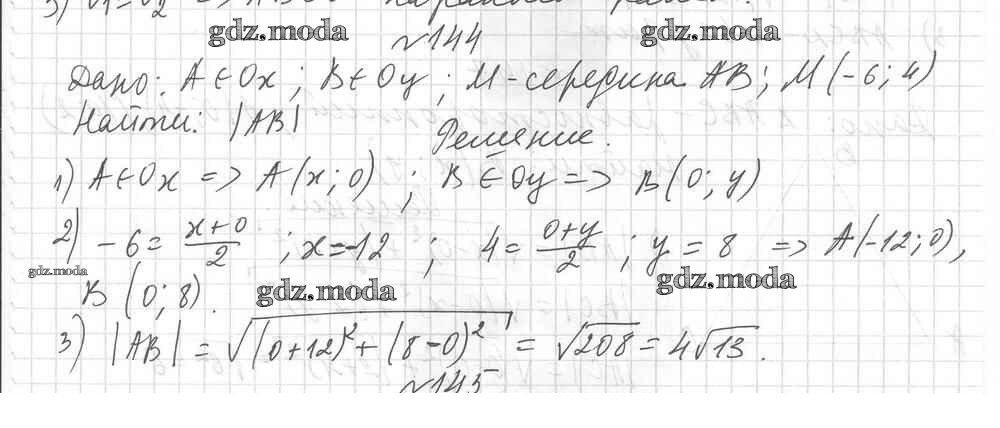 gdz.moda gdz.moda
№144
Дано: A ∈ Ox ; B ∈ Oy ; M - середина AB ; M (-6; 4)
Найти: |AB|
Решение.
1) A ∈ Ox => A(x; 0) ; B ∈ Oy => B(0; y)
2) -6 = (x+0)/2 ; x = -12 ; 4 = (0+y)/2 ; y = 8 => A(-12; 0),
gdz.moda
B (0; 8). gdz.moda gdz.moda
3) |AB| = √((0+12)² + (8-0)²) = √208 = 4√13.
№145